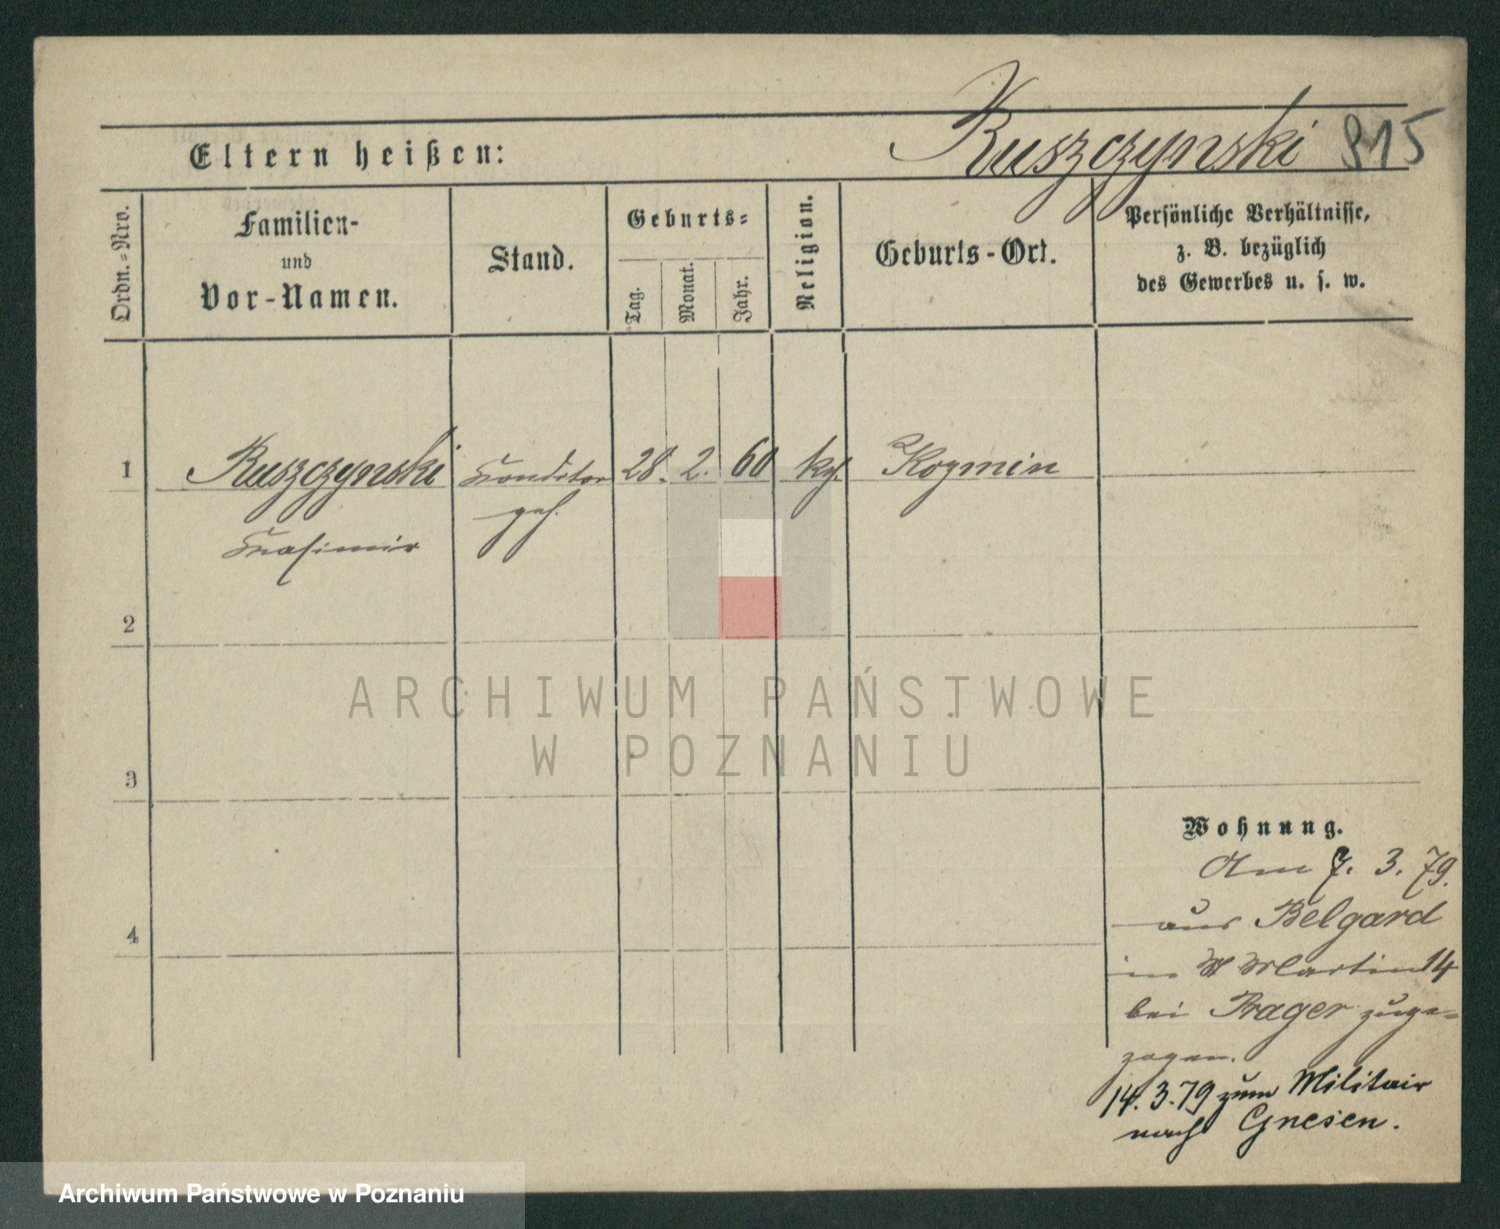 Ruszczynski 815
Eltern heißen:
Ordn.-Nro.
Familien-
und
Vor-Namen.
Stand.
Geburts-
Tag.
Monat.
Jahr.
Religion.
Geburts-Ort.
Persönliche Verhältnisse,
z. B. bezüglich
des Gewerbes u. s. w.
1 Ruszczynski Conditor 28. 2. 60 kth. Kozmin
geh.
Casimir
2
ARCHIWUM PAŃSTWOWE
W POZNANIU
3
Wohnung.
Am 7. 3. 79.
aus Belgard
in St Martin 14
4
bei Prager zuge-
zogen.
14.3.79 zum Militair
nach Gnesen.
Archiwum Państwowe w Poznaniu